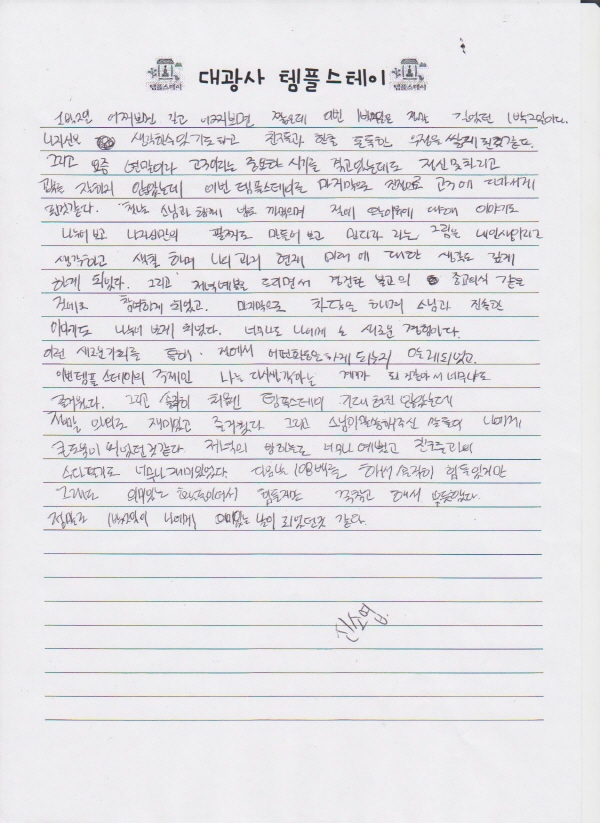 템플스테이 대광사 템플스테이 템플스테이
1박2일 어쩌보면 길고 어쩌보면 짧은데 이번 1박2일은 정말 길었던 1박2일이다.
나자신을 생각할수 있기도하고 친구들과 한층 돈독한 우정을 쌓게 된것같다.
그리고 요즘 연말이라 고3이라는 중요한 시기를 겪고있는데도 정신 못차리고
있었는데 이번 템플스테이를 마지막으로 고3에 다가서게
될것같다. 첫날 스님과 함께 절에 대해 이야기도
나누어 보고 나자신만의 팔찌도 만들어 보고 만다라 라는 그림을 내인생이라고
생각하고 색칠 하며 나의 과거 현재 미래에 대한 생각도 깊게
하게 되었다. 그리고 저녁예불을 드리면서 경건한 불교의 종교의식 같은
것에도 참여하게 되었고. 마지막으로 차담을 하며 스님과 진솔한
이야기도 나누어 보게 되었다. 너무나도 나에게 는 새로운 경험이다.
이런 새로운기회를 통해 절에서 어떤활동을하게 되는지 알게되었고.
이번템플 스테이의 주제인 나는 계기가 된것같아서 너무나도
즐거웠다. 그리고 솔직히 처음엔 템플스테이 기대 않았는데
정말 의외로 재미있고 즐거웠다. 그리고 스님이 말씀해주신 말들이 나에게
큰도움이 되었던것같다. 저녁의 너무나 예뻤고 친구들과의
수다떨기도 너무나 재미있었다. 다음날 108배를 해서 솔직히 힘들었지만
그래도 의미있는 힘들지만 꾹참고 해서 뿌듯했다.
정말로 1박2일이 나에게 의미있는 날이 되었던것 같다.
신소엽